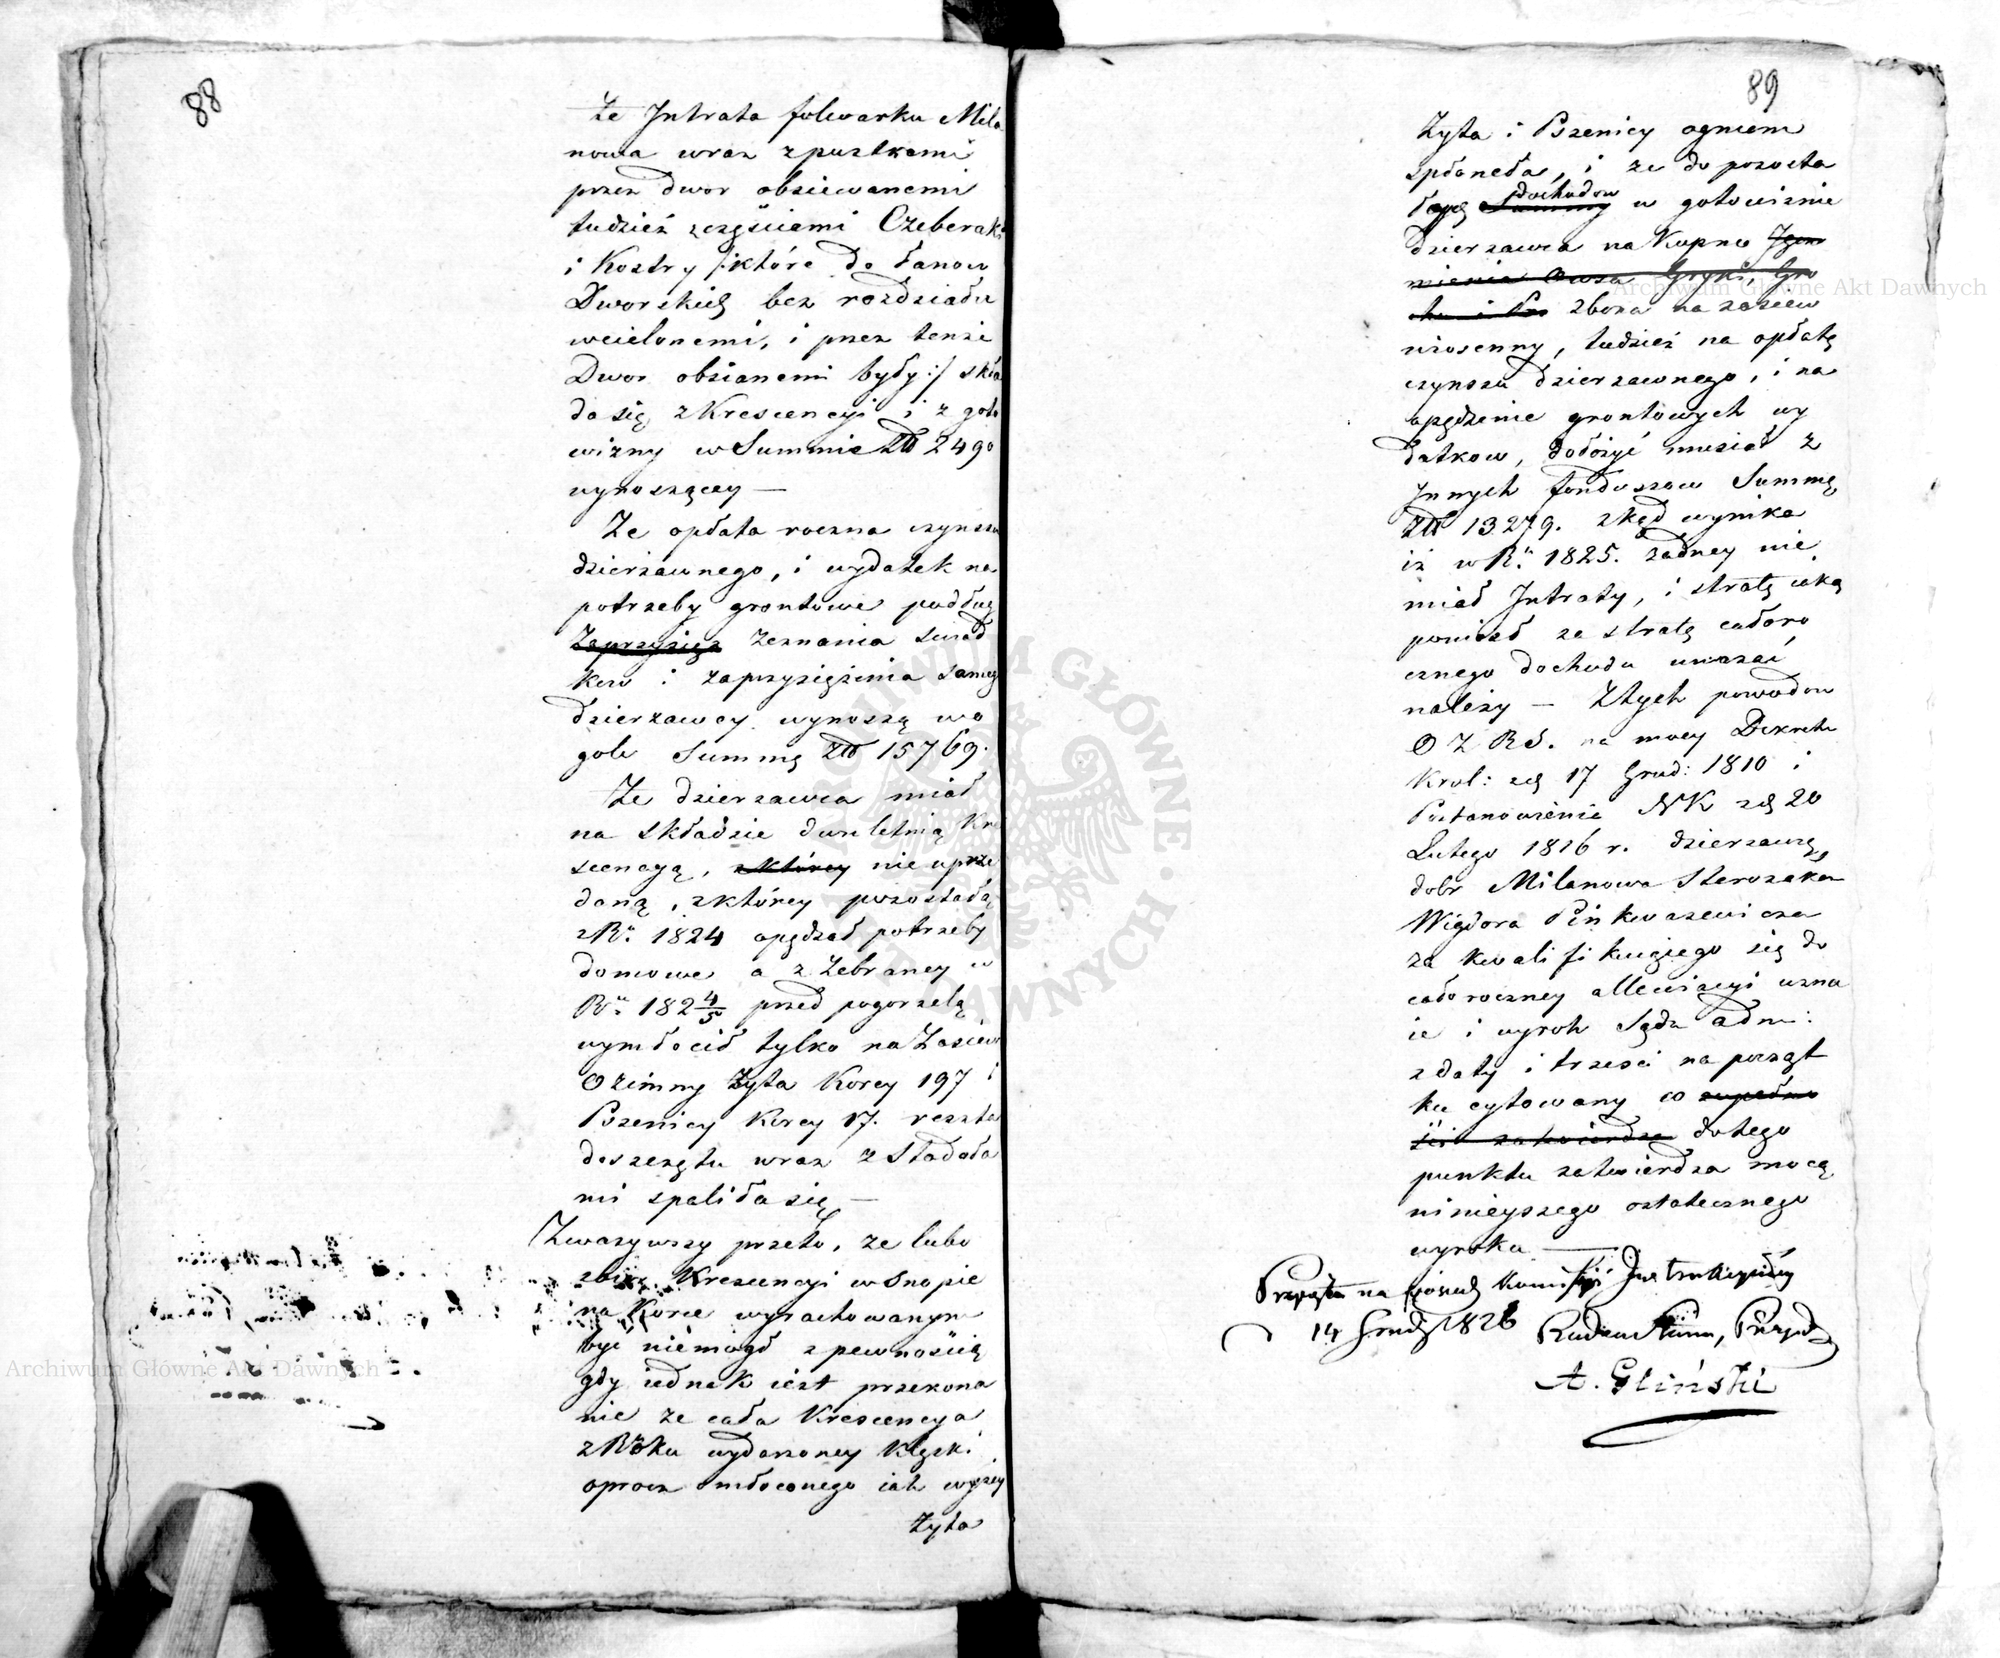 88
Że Intrata folwarku Mila
nowa wraz z pustkami
przez dwor obsiewanemi
tudzież częściami Czeberaki
i Kostry /: które do łanow
Dworskich bez rozdziału
wcielonemi, i przez tenże
Dwor obsianemi były :/ skła
da się z Krescencyi i z goto
wizny w Summie Złł 2490
wynoszącey —
Że opłata roczna czynszu
dzierżawnego, i wydatek na
potrzeby grontowe podług
Zaprzysięż zeznania świad
kow i zaprzysiężenia samego
dzierzawcy wynoszą wo
gole Summę Złł 15769.
Że dzierzawca miał
na składzie dwuletnią Kre
scencyą, z którey nieuprze
daną, z którey pozostałą
z Ru 1824 opędzał potrzeby
domowe a z Zebraney w
Ru 182 4/5 przed pogorzelą
wymłocił tylko na Zasiew
Ozimny Żyta Korcy 197 i
Pszenicy Korcy 17. reszta
doszczętu wraz z Stodoła
mi spaliła się —
Zważywszy przeto, że lubo
zbior Krescencyi w Snopie
na Korce wyrachowanym
być niemogł z pewnością
gdy iednak iest przekona
nie że cała Krescencya
z Roku wydarzoney klęski
oprocz omłoconego iak wyżey
Żyta
89
Żyta i Pszenicy ogniem
spłoneła, i że do pozosta
łych Summy dochodow w gotowiznie
dzierzawca na Kupno Jęcz
mienia Owsa Gryki, Gro
chu i Pro zboża na zasiew
wiosenny, tudzież na opłatę
czynszu dzierzawnego, i na
opędzenie grontowych wy
datkow, dołożyć musiał z
Innych funduszow Summę
Złł 13279. zkąd wynika
iż w Ru 1825. żadney nie
miał Intraty, i stratę iaką
poniosł za stratę całoro
cznego dochodu uważać
należy — Z tych powodow
O Z R S. na mocy Dekretu
Krol: z d 17 Grud: 1810 i
Postanowienia NK z d 20
Lutego 1816 r. dzierzawcę
dobr Milanowa Starozak:
Wigdora Pinkwasewicza
za kwalifikuiącego się do
całoroczney allewiacyi uzna
ie i wyrok Sądu adm:
z daty i treści na począt
ku cytowany w zupełno
ści zatwierdza do tego
punktu zatwierdza mocą
ninieyszego ostatecznego
wyroku —
Przyięto na posied: Kommissyi Instrukcyiney
d 14 Grud 1826
A. Gliński
Archiwum Główne Akt Dawnych
Archiwum Główne Akt Dawnych
ARCHIWUM GŁÓWNE AKT DAWNYCH